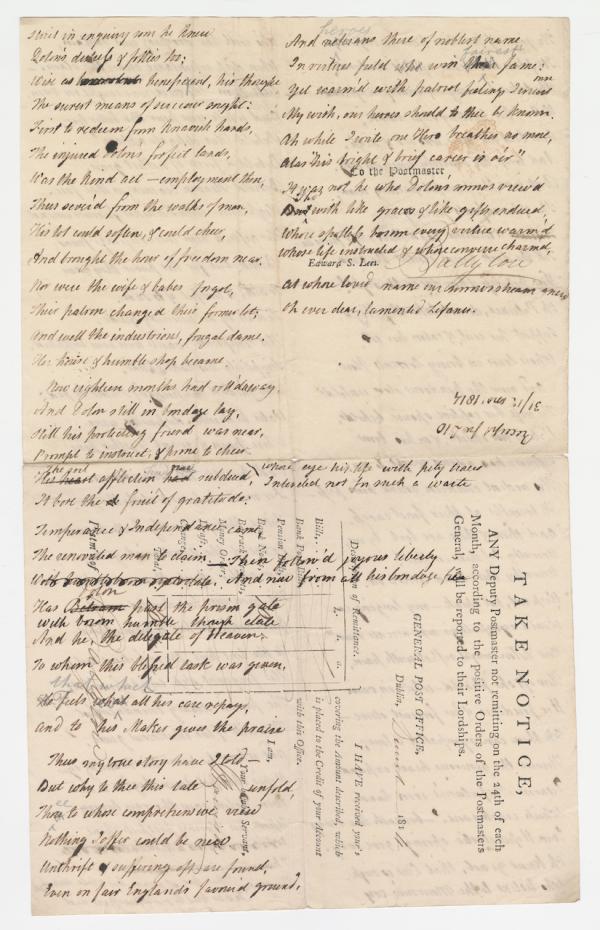 in enquiry soon he knew
Dolon's distress & follies too:
Wise as beneficent, his thought
The surest means of succour sought:
First to redeem from knavish hands,
The injured Dolon's forfeit lands,
Was the kind act — employment then,
Thus sever'd from the walks of man,
His lot could soften, & could cheer,
And brought the hour of freedom near.
Nor were the wife & babes forgot,
Their patron changed their former lot;
And well the industrious, frugal dame,
Her house & humble shop became.
Now eighteen months had roll'd away
And Dolon still in bondage lay,
Still his protecting friend was near,
Prompt to instruct, & prone to cheer
His heart affection had subdued,
It bore the fruit of gratitude:
Temperance & Independance came
The renovated man to claim — Then follow'd joyous liberty
And now from all his bondage free
Has Dolon past the prison gate
with bosom humble though elate
And he, the delegate of heaven,
To whom this blessed task was given,
that
He feels what all his care repay,
and to his Maker gives the praise
Thus my true story have I told —
But why to thee this tale unfold,
Thou to whose comprehensive view
Nothing I offer could be new
Unthrift & suffering oft are found,
Even on fair England's favour'd ground,
And veterans there of noblest name
In virtues field who win their fame:
fairest
Yet warm'd with patriot feeling I
My wish, our heroes should to thee be known.
Ah while I write one Hero breathes no more,
alas "his bright & brief career is o'er"
To the Postmaster
It was not he who Dolon's view'd
But with like graces & like gifts endued,
Whose spotless bosom every virtue warm'd
whose life instructed & whose converse charmed,
Edward S. Lees.
At whose loved name our stream anew
Oh ever dear, lamented Lefanu.
31/12 1814
whose age his life with pity
Intended not for such a waste
TAKE NOTICE,
ANY Deputy Postmaster not remitting on the 24th of each
Month, according to the positive Orders of the Postmasters
General, will be reported to their Lordships.
GENERAL POST OFFICE,
Dublin, 181
I HAVE received your's
covering the Amount described, which
is placed to the Credit of your Account
with this Office.
I am,
Your Servant,
Description of Remittance.
£. s. d.
Bills,
Bank Post
Pension
Bank Notes
Barrack
Money
Postmaster of